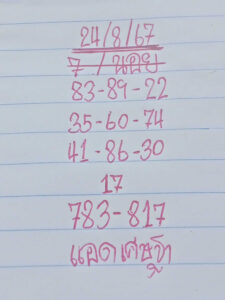 24/8/67
7/นอย
83-89-22
35-60-74
41-86-30
17
783-817
แอดเศษฐี